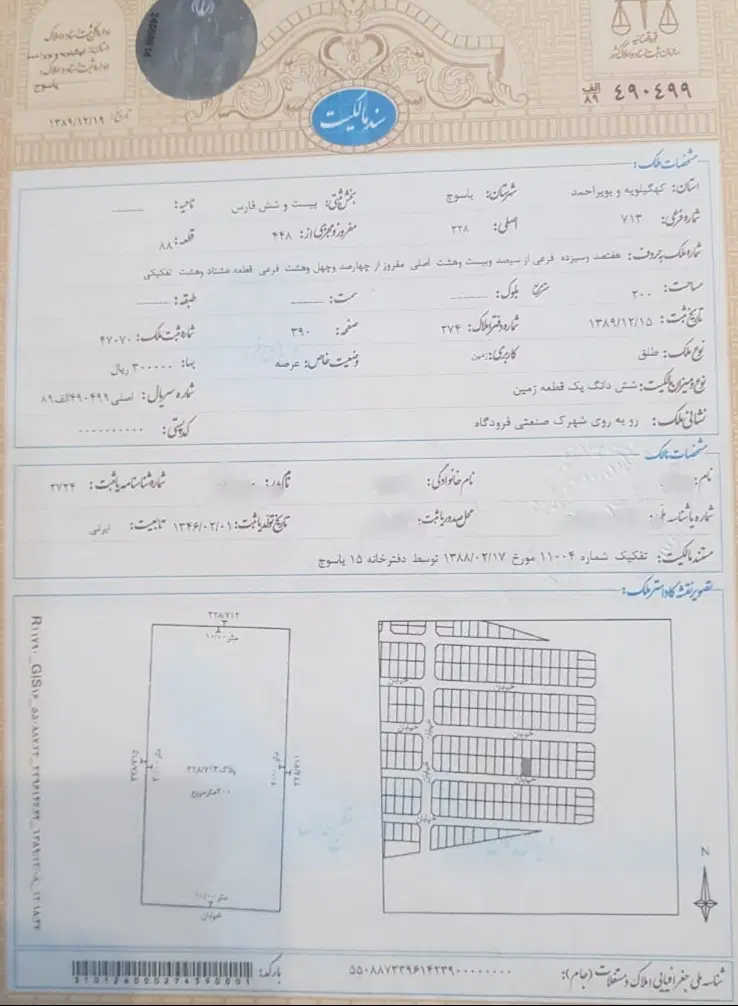 قوه قضائیه
سازمان ثبت اسناد و املاک کشور
اداره کل ثبت اسناد و املاک
استان: کهگیلویه و بویراحمد
اداره ثبت اسناد و املاک:
یاسوج
تاریخ: ۱۳۸۹/۱۲/۱۹
سند مالکیت
۴۹۰۴۹۹ الف ۸۹
مشخصات ملک:
استان: کهگیلویه و بویراحمد شهرستان: یاسوج بخش ثبتی: بیست و شش فارس ناحیه: ــــــ
شماره فرعی: ۷۱۳ اصلی: ۳۲۸ مفروز و مجزی از: ۴۴۸ قطعه: ۸۸
شماره ملک بحروف: هفتصد وسیزده فرعی از سیصد وبیست وهشت اصلی مفروز از چهارصد وچهل وهشت فرعی قطعه هشتاد وهشت تفکیکی
مساحت: ۲۰۰ متر مربع بلوک: ــــــ سمت: ــــــ طبقه: ــــــ
تاریخ ثبت: ۱۳۸۹/۱۲/۱۵ شماره دفتر املاک: ۲۷۴ صفحه: ۳۹۰ شماره ثبت ملک: ۴۷۰۷۰
نوع ملک: طلق کاربری: زمین وضعیت خاص: عرصه بها: ۳۰۰۰۰۰ ریال
نوع و میزان مالکیت: شش دانگ یک قطعه زمین شماره سریال: اصلی ۴۹۰۴۹۹الف۸۹
نشانی ملک: رو به روی شهرک صنعتی فرودگاه کد پستی: ۰۰۰۰۰۰۰۰۰۰
مشخصات مالک
نام: نام خانوادگی: نام پدر: شماره شناسنامه یا ثبت: ۲۷۲۴
شماره یا شناسه ملی: محل صدور یا ثبت: تاریخ تولد یا ثبت: ۱۳۴۶/۰۲/۰۱ تابعیت: ایرانی
مستند مالکیت: تفکیک شماره ۱۱۰۰۴ مورخ ۱۳۸۸/۰۲/۱۷ توسط دفترخانه ۱۵ یاسوج
تصویر نقشه کاداستر ملک:
۳۲۸/۷۱۲
۱۰/۰۰متر
پلاک ۳۲۸/۷۱۳
۲۰۰مترمربع
۳۲۸/۷۱۱
خیابان
خیابان
خیابان
خیابان
خیابان
خیابان
خیابان
خیابان
خیابان
N
شناسه ملی جغرافیایی املاک و مستغلات (جام): ۵۵۰۸۸۷۳۳۹۶۱۴۲۳۹۰۰۰۰۰۰۰۰۰ بارکد: